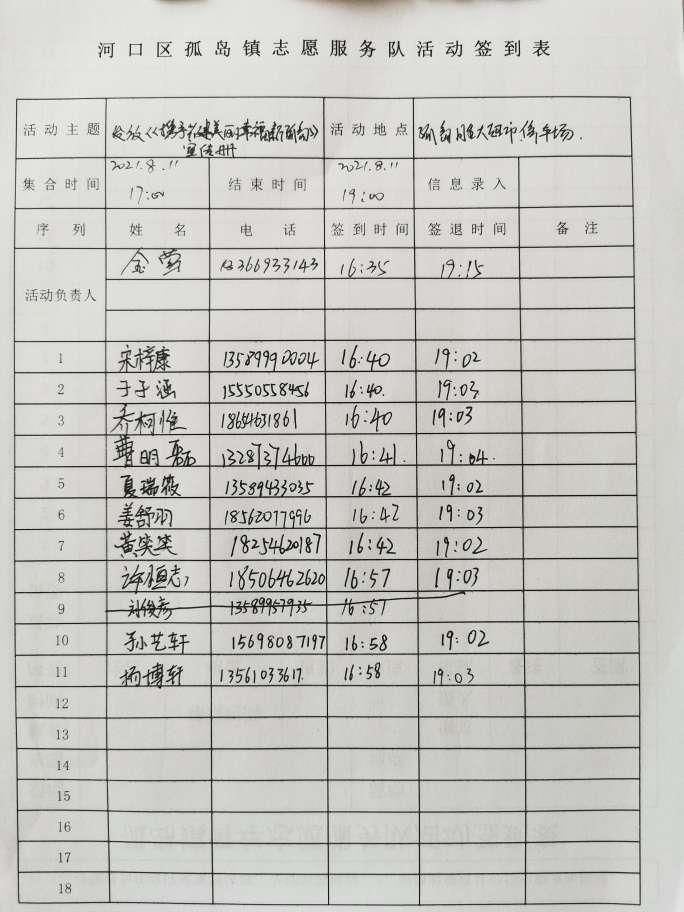 河口区孤岛镇志愿服务队活动签到表
活动主题 发放《携手共建美丽幸福新孤岛》宣传册 活动地点 孤岛 大超市停车场.
集合时间 2021.8.11 17:00 结束时间 2021.8.11 19:00 信息录入
序列 姓名 电话 签到时间 签退时间 备注
活动负责人 金莹 13366933143 16:35 19:15
1 宋梓康 13589990004 16:40 19:02
2 于子涵 15550558456 16:40. 19:03
3 乔柯惟 18654631861 16:40 19:03
4 曹明磊 13287374600 16:41. 19:04.
5 夏瑞筱 13589433035 16:42 19:02
6 姜舒羽 18562077996 16:42 19:03
7 黄笑笑 18254620187 16:42 19:02
8 许恒志 18506462620 16:57 19:03
9 刘俊彦 13589957935 16:57
10 孙艺轩 15698087197 16:58 19:02
11 杨博轩 13561033617. 16:58 19:03
12
13
14
15
16
17
18